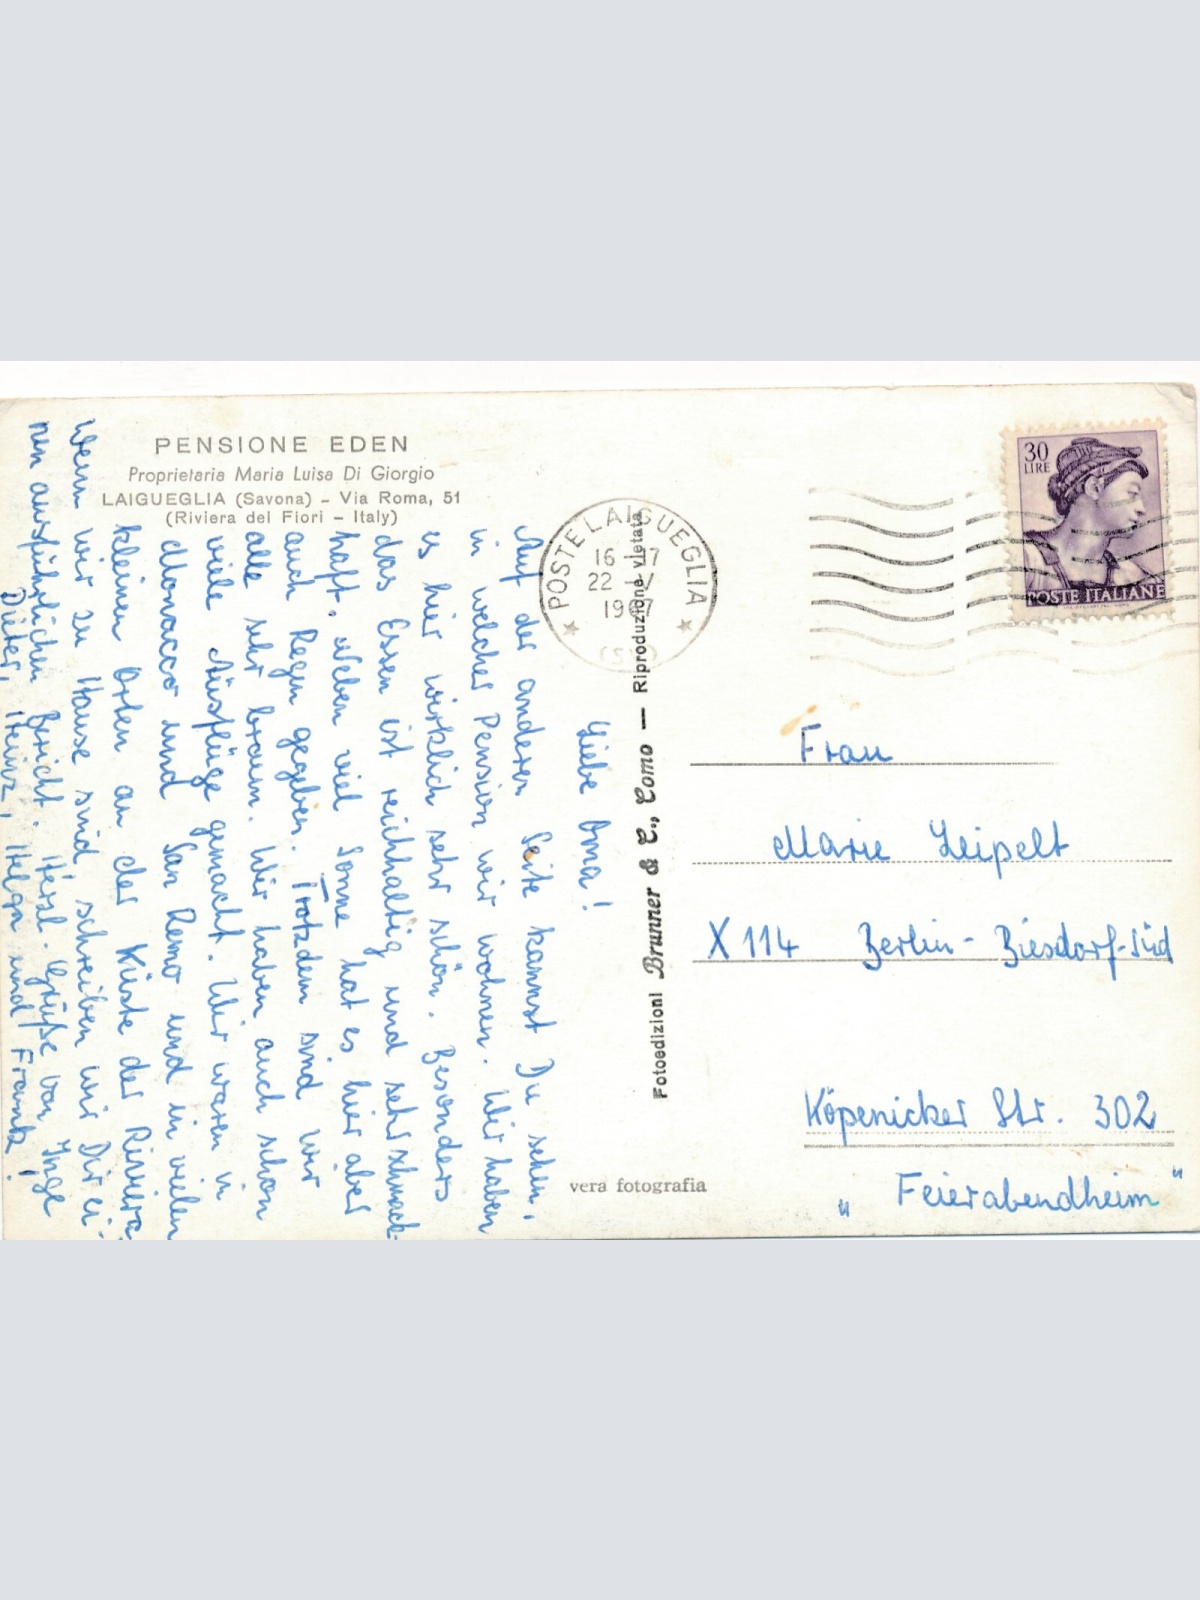 PENSIONE EDEN
Proprietaria Maria Luisa Di Giorgio
LAIGUEGLIA (Savona) - Via Roma, 51
(Riviera dei Fiori - Italy)
Liebe Oma!
Auf der anderen Seite kannst Du sehen,
in welcher Pension wir wohnen. Wir haben
es hier wirklich sehr schön. Besonders
das Essen ist reichhaltig und sehr schmack-
haft. Neben viel Sonne hat es hier aber
auch Regen gegeben. Trotzdem sind wir
alle sehr braun. Wir haben auch schon
viele Ausflüge gemacht. Wir waren in
Monacco und San Remo und in vielen
kleinen Orten an der Küste der Riviera.
Wenn wir zu Hause sind, schreiben wir Dir ei-
nen ausführlichen Bericht. Herzl. Grüße von Inge
Dieter, Heinz, Helga und Frank!
Fotoedizioni Brunner & C., Como — Riproduzione vietata
vera fotografia
POSTE LAIGUEGLIA
16-17
22 V
1967
(SV)
30
LIRE
POSTE ITALIANE
Frau
Marie Leipelt
X 114 Berlin-Biesdorf-Süd
Köpenicker Str. 302
"Feierabendheim"